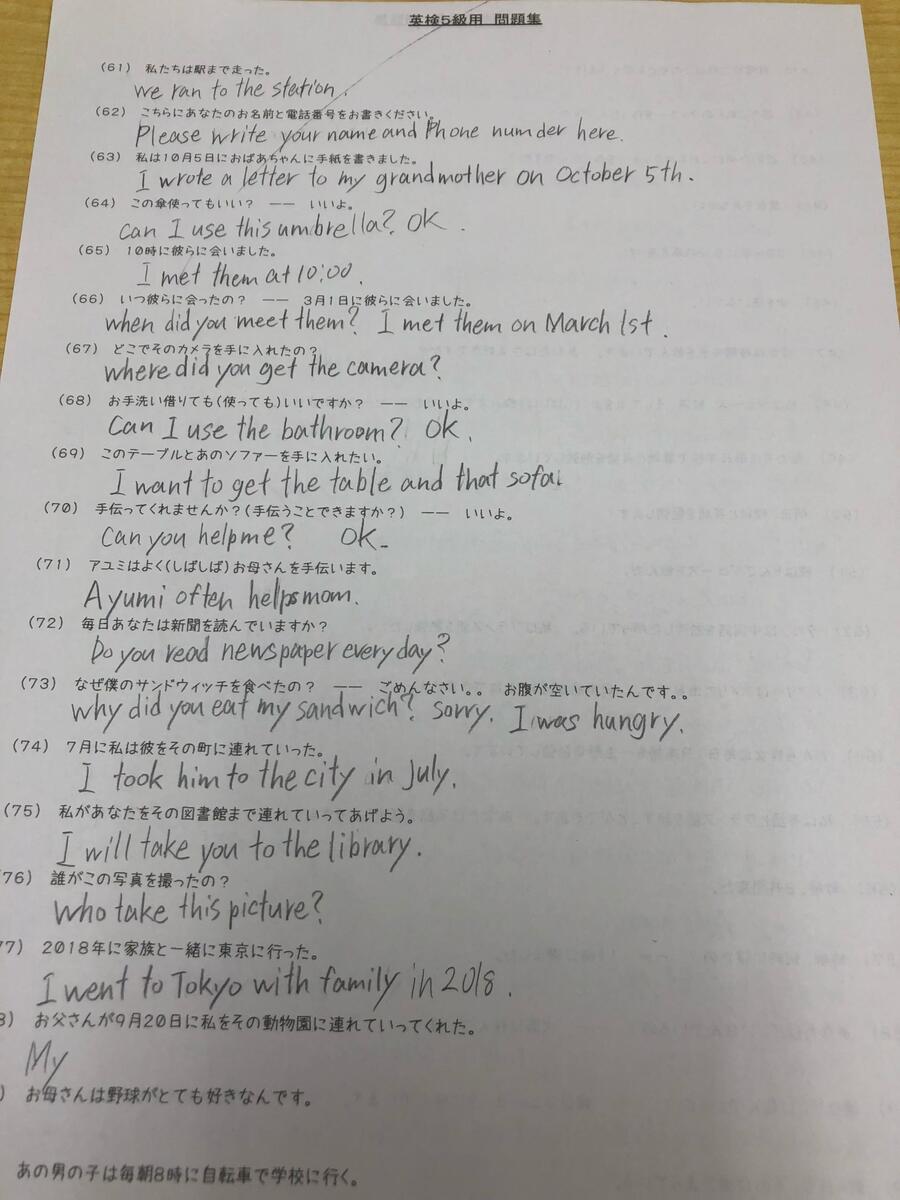 英検5級用 問題集
(61) 私たちは駅まで走った。
we ran to the station.
(62) こちらにあなたのお名前と電話番号をお書きください。
Please write your name and Phone numder here.
(63) 私は10月5日におばあちゃんに手紙を書きました。
I wrote a letter to my grandmother on October 5th.
(64) この傘使ってもいい? —— いいよ。
can I use this umbrella? OK.
(65) 10時に彼らに会いました。
I met them at 10:00.
(66) いつ彼らに会ったの? —— 3月1日に彼らに会いました。
when did you meet them? I met them on March 1st.
(67) どこでそのカメラを手に入れたの?
where did you get the camera?
(68) お手洗い借りても(使っても)いいですか? —— いいよ。
Can I use the bathroom? OK.
(69) このテーブルとあのソファーを手に入れたい。
I want to get the table and that sofa.
(70) 手伝ってくれませんか?(手伝うことできますか?) —— いいよ。
Can you help me? OK.
(71) アユミはよく(しばしば)お母さんを手伝います。
Ayumi often helps mom.
(72) 毎日あなたは新聞を読んでいますか?
Do you read newspaper every day?
(73) なぜ僕のサンドウィッチを食べたの? —— ごめんなさい。。 お腹が空いていたんです。。
why did you eat my sandwich? sorry. I was hungry.
(74) 7月に私は彼をその町に連れていった。
I took him to the city in July.
(75) 私があなたをその図書館まで連れていってあげよう。
I will take you to the library.
76) 誰がこの写真を撮ったの?
who take this picture?
7) 2018年に家族と一緒に東京に行った。
I went to Tokyo with family in 2018.
8) お父さんが9月20日に私をその動物園に連れていってくれた。
My
) お母さんは野球がとても好きなんです。
あの男の子は毎朝8時に自転車で学校に行く。